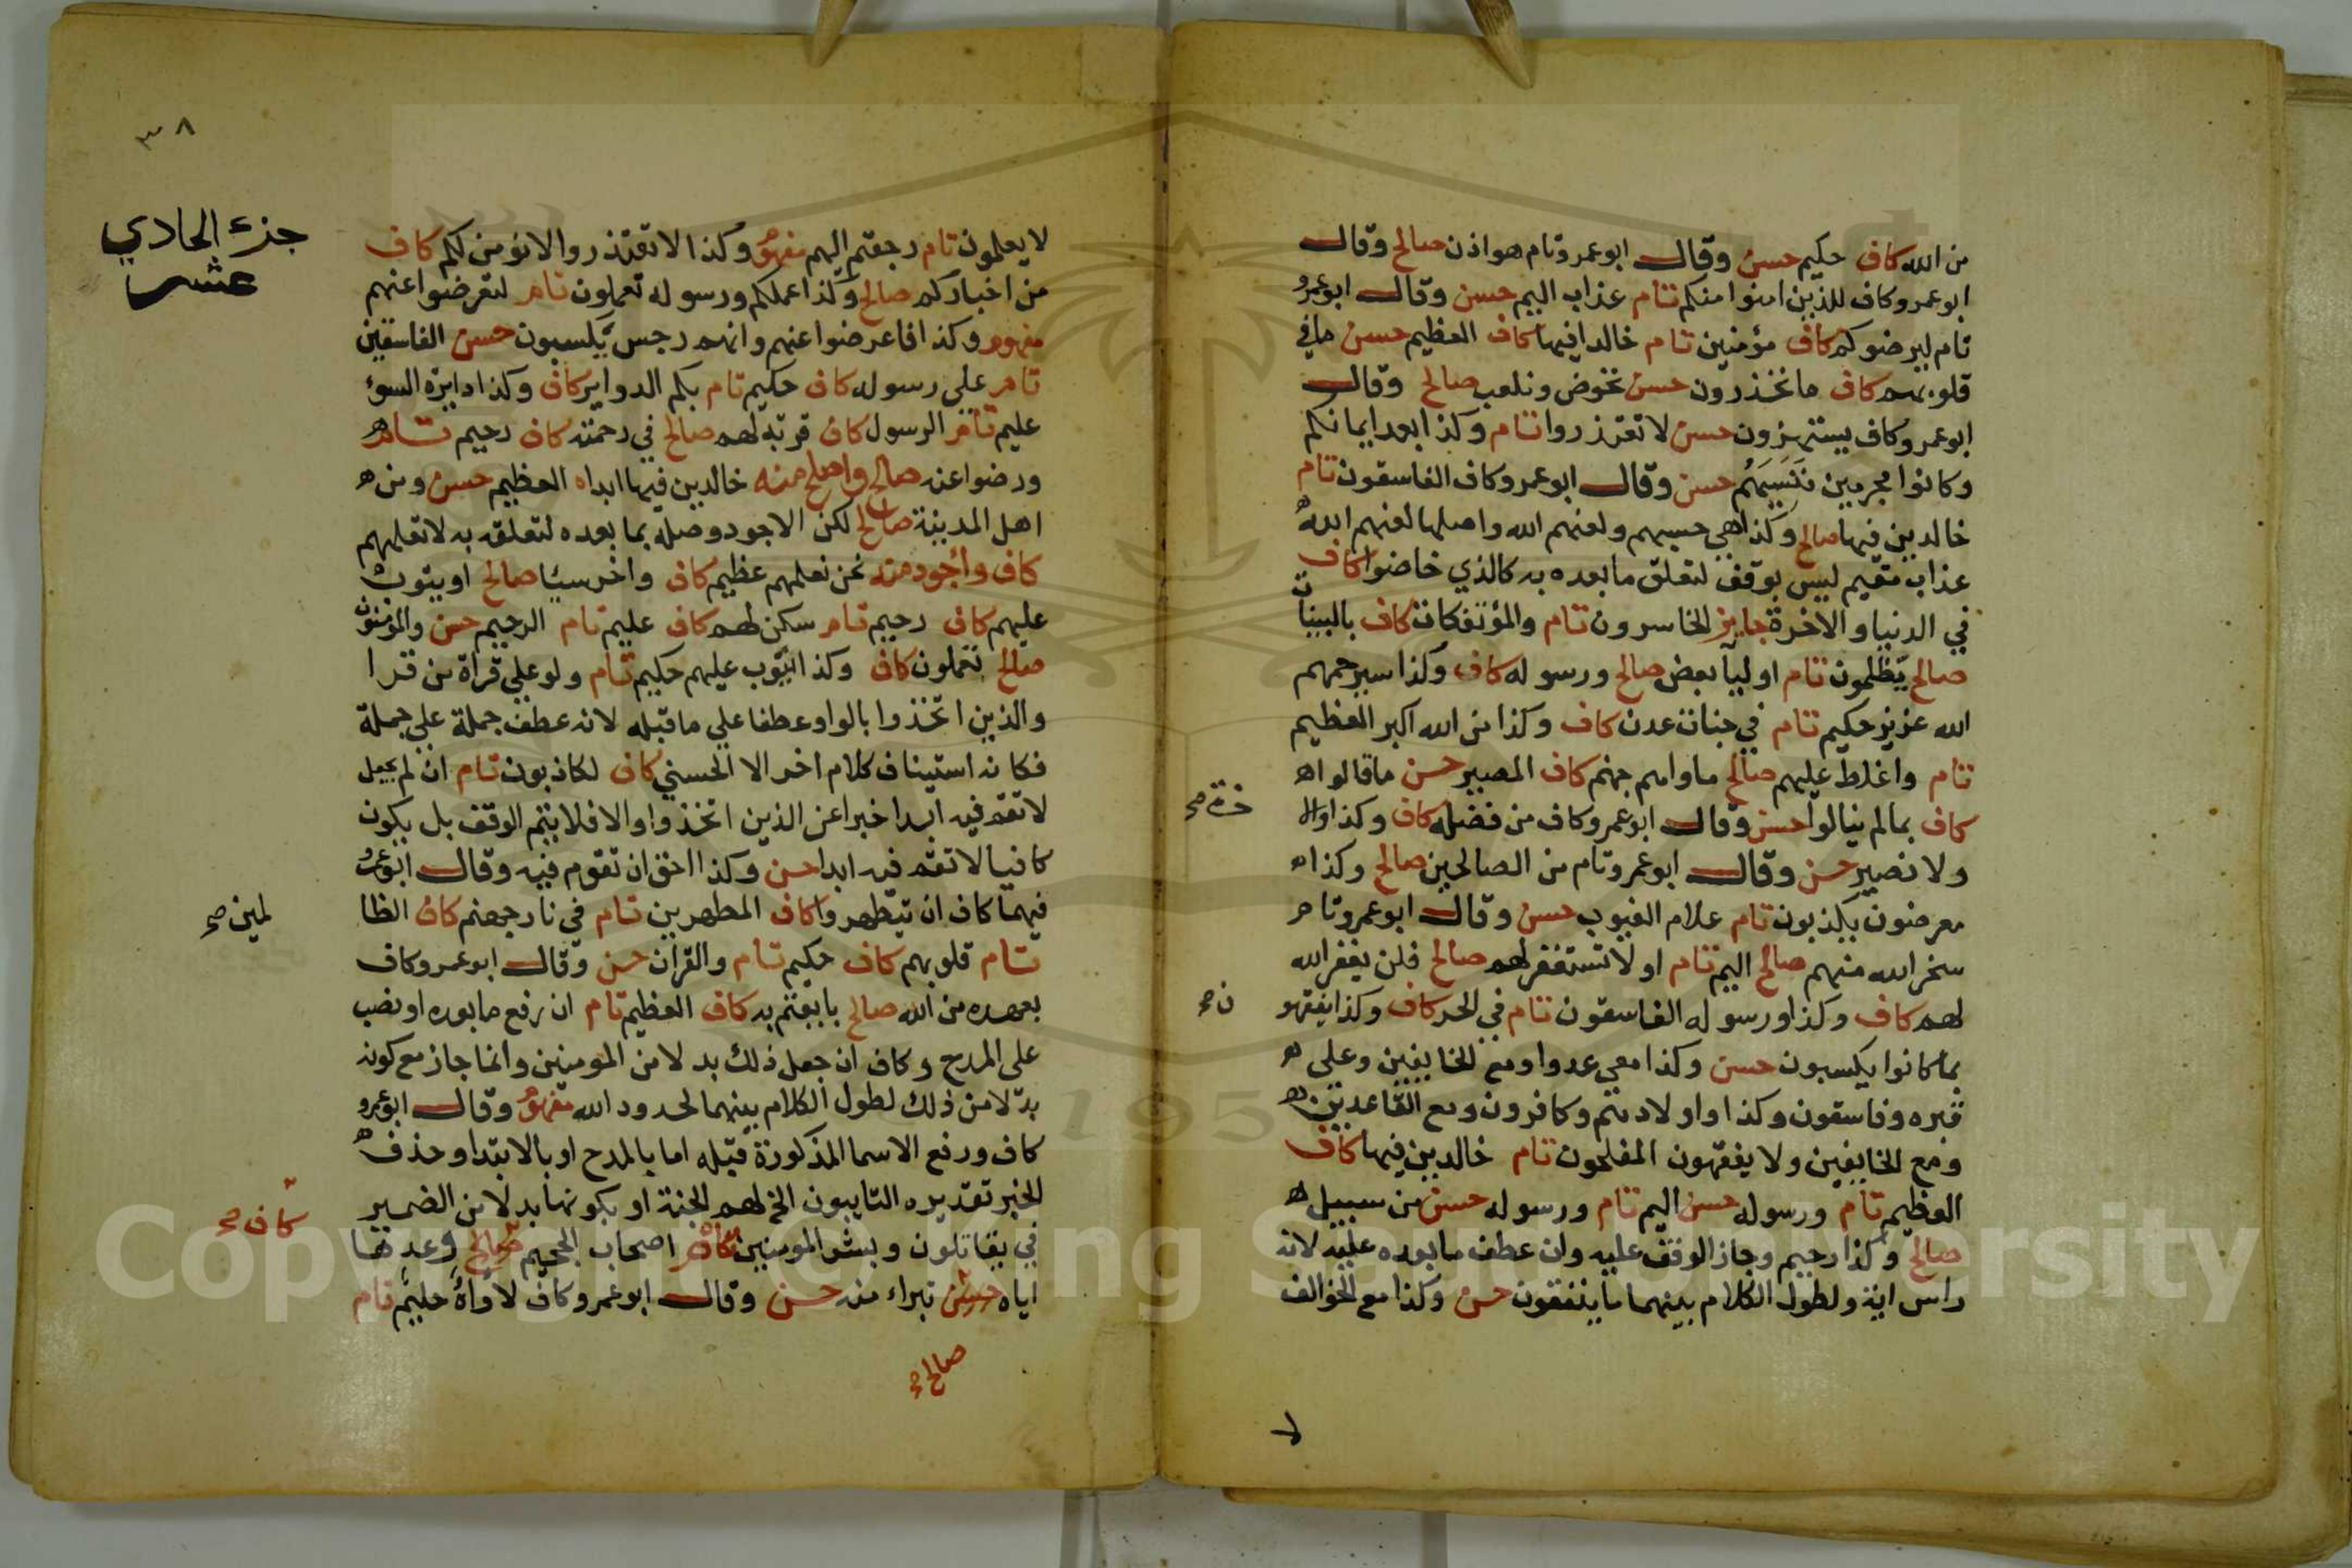 من الله كاف حكيم حسن وقال ابو عمرو تام هو اذن صالح وقال
ابو عمرو كاف للذين امنوا منكم تام عذاب اليم حسن وقال ابو عمرو
تام ليرضوكم كاف مؤمنين تام خالدا فيها كاف العظيم حسن ما في
قلوبهم كاف ما تحذرون حسن نخوض ونلعب صالح وقال
ابو عمرو كاف يستهزون حسن لا تعتذروا تام وكذا بعد ايمانكم
وكانوا مجرمين فنسيهم حسن وقال ابو عمرو كاف الفاسقون تام
خالدين فيها صالح وكذا هي حسبهم ولعنهم الله واصلها لعنهم الله
عذاب مقيم ليس بوقف لتعلق ما بعده به كالذي خاضوا كاف
في الدنيا والاخرة جايز الخاسرون تام والمؤتفكات كاف بالبينات
صالح يظلمون تام اوليا بعض صالح ورسوله كاف وكذا سيرحمهم
الله عزيز حكيم تام في جنات عدن كاف وكذا من الله اكبر العظيم
تام واغلظ عليهم صالح ماواهم جهنم كاف المصير حسن ما قالوا
كاف بما لم ينالوا حسن وقال ابو عمرو كاف من فضله كاف وكذا وال
خرة صح
ولا نصير حسن وقال ابو عمرو تام من الصالحين صالح وكذا
معرضون يكذبون تام علام الغيوب حسن وقال ابو عمرو تام
سخر الله منهم صالح اليم تام او لا تستغفر لهم صالح فلن يغفر الله
لهم كاف وكذا ورسوله الفاسقون تام في الحر كاف وكذا يفقهو
ن صح
بما كانوا يكسبون حسن وكذا معي عدوا ومع الخايفين وعلى
قبره وفاسقون وكذا واولادهم وكافرون ومع القاعدين
ومع الخايفين ولا يفقهون المفلحون تام خالدين فيها كاف
العظيم تام ورسوله حسن اليم تام ورسوله حسن من سبيل
صالح وكذا رحيم وجاز الوقف عليه وان عطف ما بعده عليه لانه
راس اية ولطول الكلام بينهما ما ينفقون حسن وكذا مع الخوالف
لا
٣٨
جزء الحادي
عشر
لا يعلمون تام رجعتم اليهم مفهوم وكذا لا تعتذروا لانؤمن لكم كاف
من اخباركم صالح وكذا عملكم ورسوله تعملون تام لتعرضوا عنهم
مفهوم وكذا فاعرضوا عنهم وانهم رجس يكسبون حسن الفاسقين
تام على رسوله كاف حكيم تام بكم الدواير كاف وكذا دايرة السوء
عليم تام الرسول كاف قربة لهم صالح في رحمته كاف رحيم تام
ورضوا عنه صالح واصلح منه خالدين فيها ابدا العظيم حسن ومن
اهل المدينة صالح لكن الاجود وصله بما بعده لتعلقه به لا تعلمهم
كاف وأجود منه نحن نعلمهم عظيم كاف واخر سيئا صالح او يتوب
عليهم كاف رحيم تام سكن لهم كاف عليم تام الرحيم حسن والمؤمنون
صالح تعملون كاف وكذا يتوب عليهم حكيم تام ولو على قراة من قرا
والذين اتخذوا بالواو عطفا علي ما قبله لانه عطف جملة علي جملة
فكانه استيناف كلام اخر الا الحسني كاف لكاذبون تام ان لم يجعل
لا تقم فيه ابدا خبرا عن الذين اتخذوا والا فلا يتم الوقف بل يكون
كافيا لا تقم فيه ابدا حسن وكذا احق ان تقوم فيه وقال ابو عمرو
فيهما كاف ان يتطهروا كاف المطهرين تام في نار جهنم كاف الظا
لمين صح
تام قلوبهم كاف حكيم تام والقران حسن وقال ابو عمرو كاف
بعهده من الله صالح بايعتم به كاف العظيم تام ان رفع ما بعده او نصب
على المدح وكاف ان جعل ذلك بدلا من المومنين وانما جاز مع كونه
بدلا من ذلك لطول الكلام بينهما لحدود الله مفهوم وقال ابو عمرو
كاف ورفع الاسما المذكورة قبله اما بالمدح او بالابتدا وحذف
الخبر تقديره التايبون الخ لهم الجنة او بكونها بدلا من الضمير
كاف صح
في يقاتلون وبشر المومنين تام اصحاب الجحيم صالح وعدها
اياه حسن تبراء منه حسن وقال ابو عمرو كاف لأواه حليم تام
صالح صح
Copyright © King Saud University
195